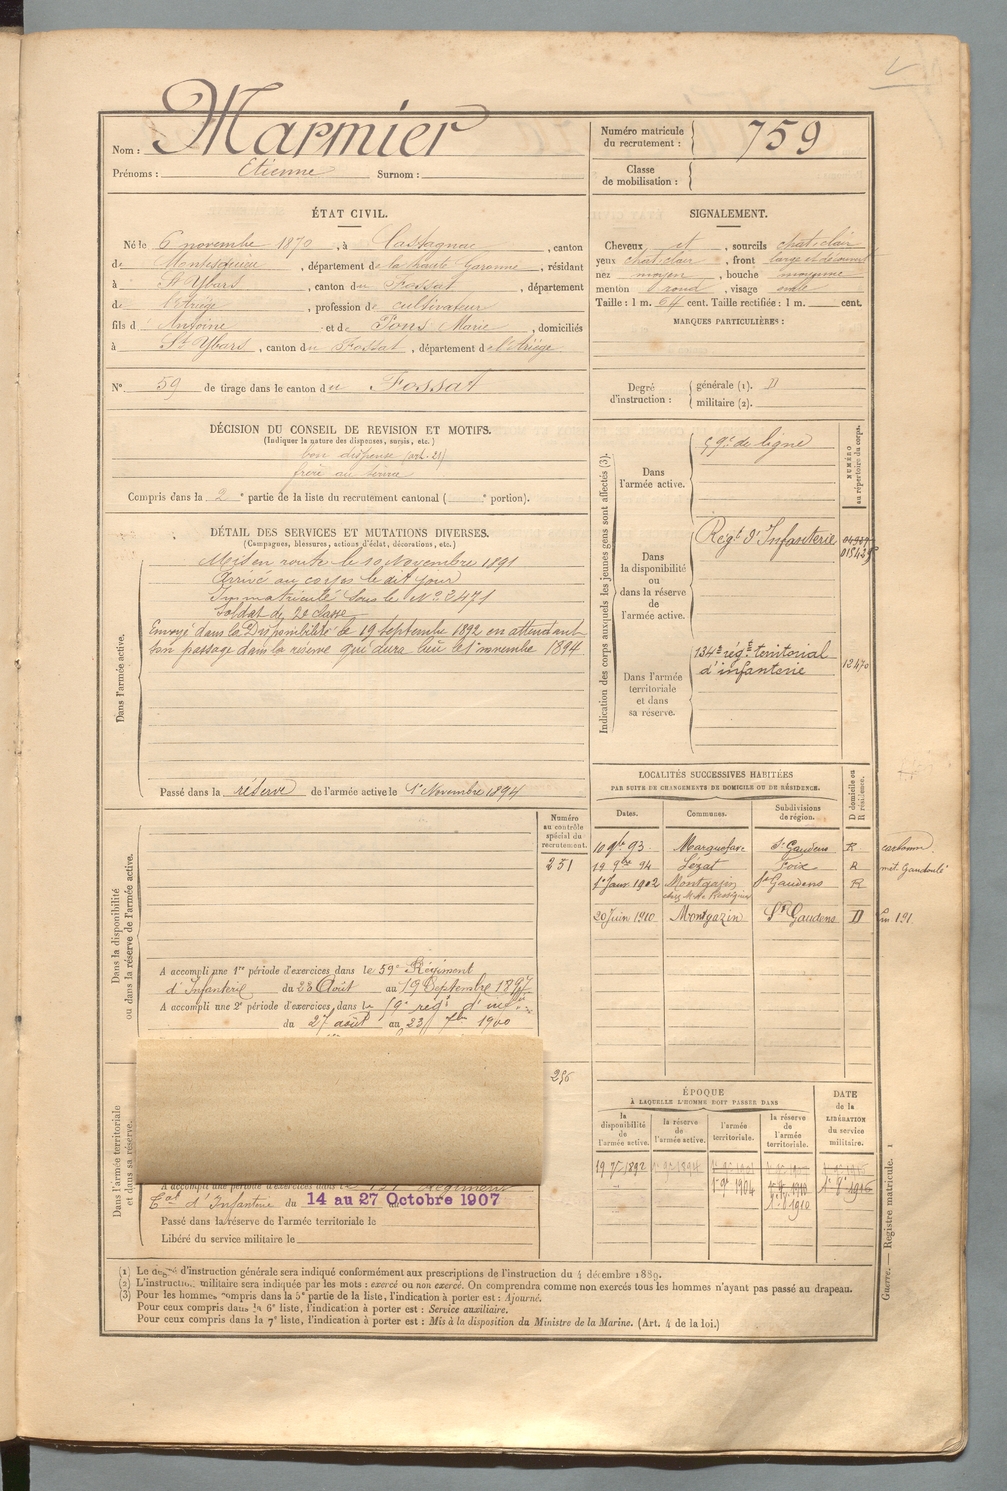 Nom : Marmier
Prénoms : Etienne Surnom :
Numéro matricule du recrutement : 759
Classe de mobilisation :
ÉTAT CIVIL.
Né le 6 novembre 1870, à Castagnac, canton
de Montesquieu, département de la haute Garonne, résidant
à St Ybars, canton du Fossat, département
de l'Ariège, profession de cultivateur
fils d' Antoine et de Pons Marie, domiciliés
à St Ybars, canton du Fossat, département de l'Ariège.
N° 59 de tirage dans le canton du Fossat
SIGNALEMENT.
Cheveux et, sourcils chat. clair
yeux chat. clair, front large et découvert
nez moyen, bouche moyenne
menton rond, visage ovale
Taille : 1 m. 64 cent. Taille rectifiée : 1 m. cent.
MARQUES PARTICULIÈRES :
Degré d'instruction :
générale (1).
militaire (2).
DÉCISION DU CONSEIL DE REVISION ET MOTIFS.
(Indiquer la nature des dispenses, sursis, etc.)
bon dispensé (art. 21)
frère au
Compris dans la 2e partie de la liste du recrutement cantonal ( e portion).
DÉTAIL DES SERVICES ET MUTATIONS DIVERSES.
(Campagnes, blessures, actions d'éclat, décorations, etc.)
Dans l'armée active.
Mis en route le 10 Novembre 1891
Arrivé au corps le dit jour
Immatriculé sous le No 3471
Soldat de 2e classe
Envoyé dans la Disponibilité le 19 septembre 1892 en attendant
son passage dans la réserve qui aura lieu le 1er novembre 1894.
Passé dans la réserve de l'armée active le 1er Novembre 1894
Indication des corps auxquels les jeunes gens sont affectés (3).
NUMÉRO au répertoire du corps.
Dans l'armée active.
59e de ligne
Dans la disponibilité ou dans la réserve de l'armée active.
Régt d'Infanterie
Dans l'armée territoriale et dans sa réserve.
134e régt territorial
d'infanterie
12470
LOCALITÉS SUCCESSIVES HABITÉES
PAR SUITE DE CHANGEMENTS DE DOMICILE OU DE RÉSIDENCE.
Dates. Communes. Subdivisions de région. D domicile ou R résidence.
10 9bre 93. Marquefave St Gaudens R
19 9bre 94 Lézat Foix R
1er Janv. 1902 Montgazin St Gaudens R
20 Juin 1910 Montgazin St Gaudens D
Dans la disponibilité ou dans la réserve de l'armée active.
Numéro au contrôle spécial du recrutement.
251
A accompli une 1re période d'exercices dans le 59e Régiment
d'Infanterie du 23 Août au 19 Septembre 1897
A accompli une 2e période d'exercices dans le
du 27 août au 23 7bre 1900
Dans l'armée territoriale et dans sa réserve.
A accompli une période d'exercices dans le Régiment
Tal d'Infanterie du 14 au 27 Octobre 1907
Passé dans la réserve de l'armée territoriale le
Libéré du service militaire le
ÉPOQUE
À LAQUELLE L'HOMME DOIT PASSER DANS
la disponibilité de l'armée active.
la réserve de l'armée active.
l'armée territoriale.
la réserve de l'armée territoriale.
DATE de la LIBÉRATION du service militaire.
Guerre. — Registre matricule. 1
(1) Le degré d'instruction générale sera indiqué conformément aux prescriptions de l'instruction du 4 décembre 1889.
(2) L'instruction militaire sera indiquée par les mots : exercé ou non exercé. On comprendra comme non exercés tous les hommes n'ayant pas passé au drapeau.
(3) Pour les hommes compris dans la 5e partie de la liste, l'indication à porter est : Ajourné.
Pour ceux compris dans la 6e liste, l'indication à porter est : Service auxiliaire.
Pour ceux compris dans la 7e liste, l'indication à porter est : Mis à la disposition du Ministre de la Marine. (Art. 4 de la loi.)